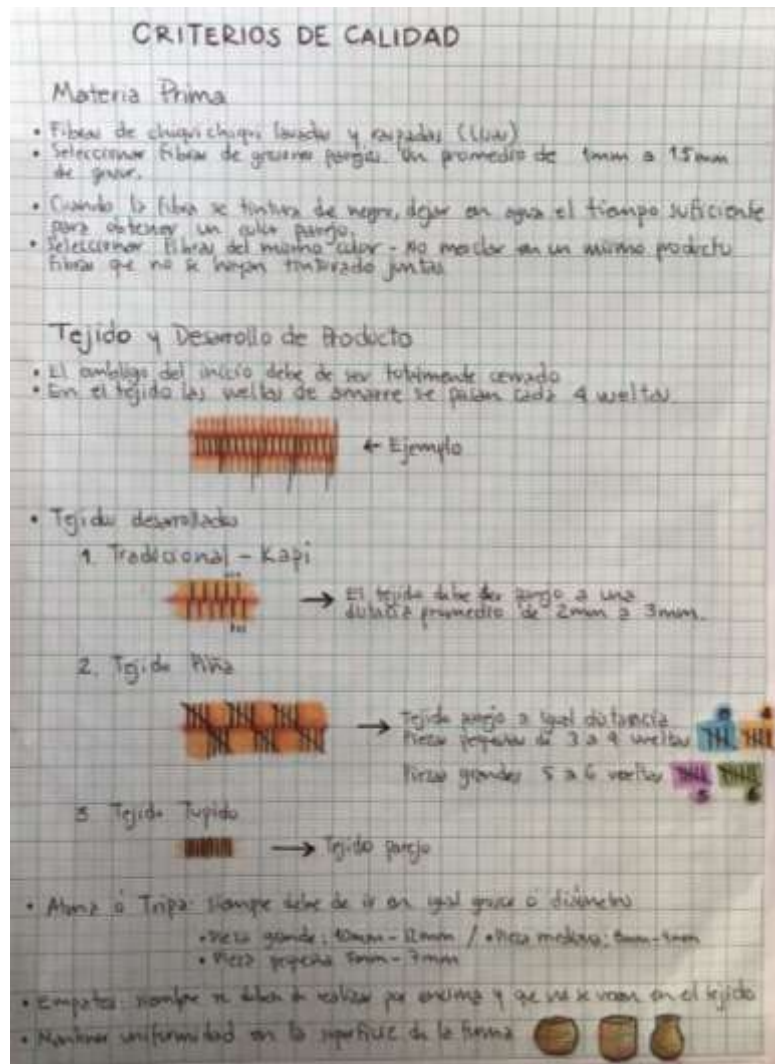 CRITERIOS DE CALIDAD
Materia Prima
• Fibras de chiquichiqui lavadas y raspadas
• Seleccionar fibras de grosores parejos. Un promedio de 1mm a 1.5mm
de grosor.
• Cuando la fibra se tintura de negro, dejar en agua el tiempo suficiente
para obtener un color parejo.
• Seleccionar Fibras del mismo color - No mezclar en un mismo producto
fibras que no se hayan tinturado juntas
Tejido y Desarrollo de Producto
• El ombligo del inicio debe de ser totalmente cerrado
• En el tejido las vueltas de amarre se pasan cada 4 vueltas
← Ejemplo
• Tejidos desarrollados
1. Tradicional - Kapi
→ El tejido debe ser parejo a una
distancia promedio de 2mm a 3mm.
2. Tejido Piña
→ Tejido parejo a igual distancia
Piezas pequeñas de 3 a 4 vueltas
Piezas grandes 5 a 6 vueltas
5 6
3 Tejido Tupido
→ Tejido parejo
• Alma ó Tripa: siempre debe de ir en igual grosor ó diámetro
• Pieza grande: 10mm - 12mm / • Pieza mediana: 8mm - 9mm
• Pieza pequeña 5mm - 7mm
• Empates: siempre se deben de realizar por encima y que no se vean en el tejido
• Mantener uniformidad en la superficie de la forma